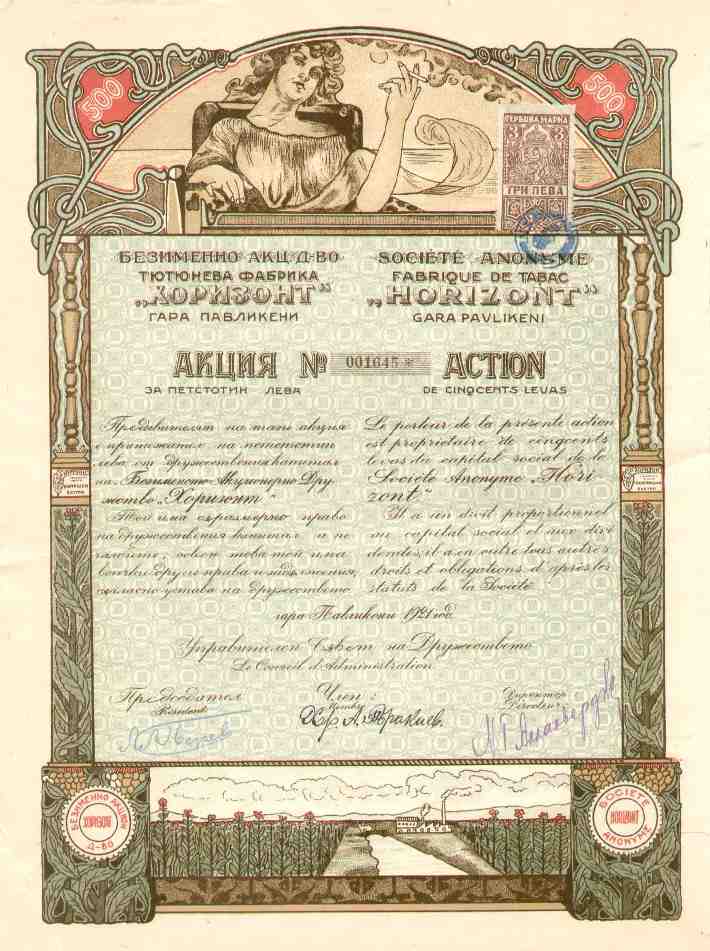 500
500
ГЕРБОВА МАРКА
3 3
ТРИ ЛЕВА
БЕЗИМЕННО АКЦ. Д-ВО
ТЮТЮНЕВА ФАБРИКА
„ХОРИЗОНТ”
ГАРА ПАВЛИКЕНИ
SOCIÉTÉ ANONYME
FABRIQUE DE TABAC
„HORIZONT”
GARA PAVLIKENI
АКЦИЯ № 001645 * ACTION
ЗА ПЕТСТОТИН ЛЕВА
DE CINQCENTS LEVAS
Предявителят на тази акция
е притежател на петстотин
лева от дружествения капитал
на „Безименото Акционерно Дру-
жество „Хоризонт”
Той има съразмерно право
на дружествения капитал и пе-
чалбите, освен това той има
всички други права и задължения,
съгласно устава на дружеството
Le porteur de la présente action
est propriétaire de cinqcents
levas du capital social de la
“Société Anonyme „Hori-
zont”
Il a un droit proportionnel
au capital social et aux divi-
dendes, il a en outre tous autres
droits et obligations d'après les
statuts de la Société
гара Павликени 1921 год.
Управителен Съвет на Дружеството
Le Conseil d'Administration
Председател
Président
Член:
Membre
Директор
Directeur
БЕЗИМЕННО АКЦИОН.
Д-ВО
ХОРИЗОНТ
SOCIÉTÉ
ANONYME
HORIZONT